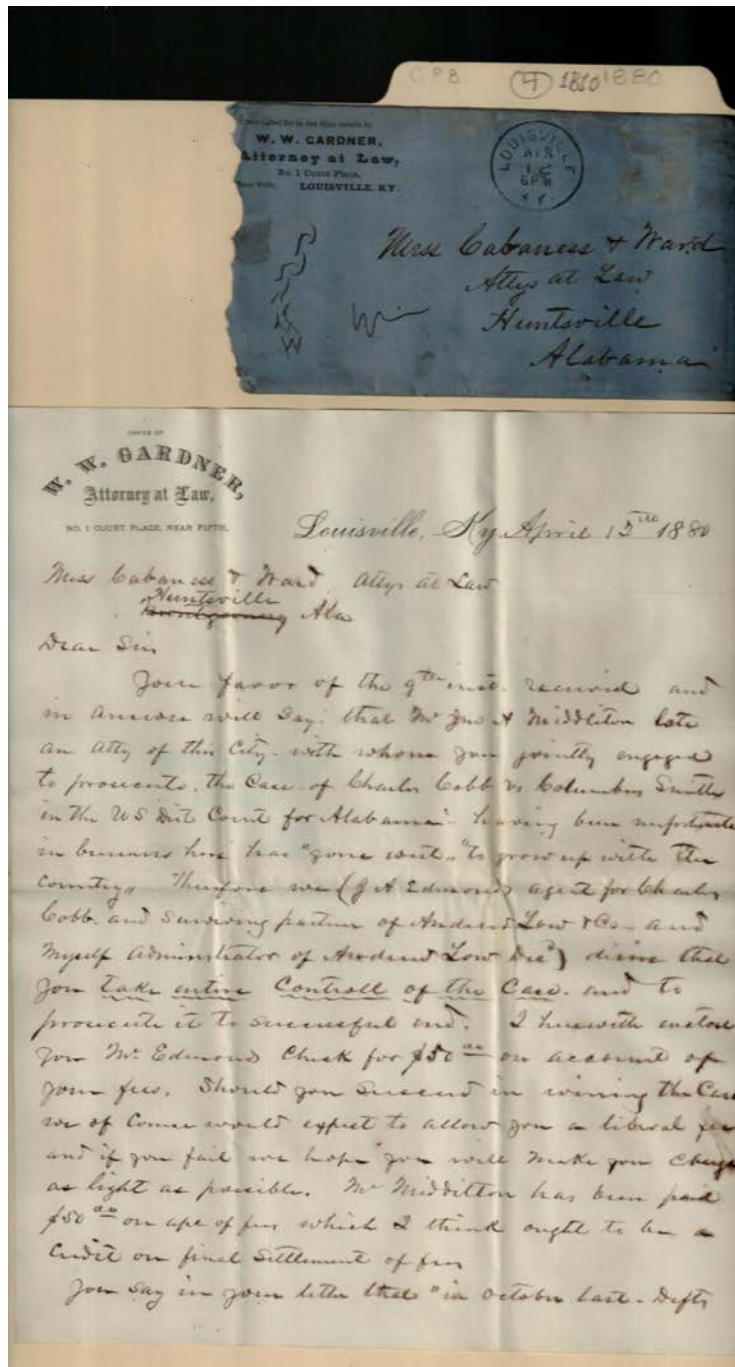 C.P.B. 4 1810 1880
W. W. GARDNER,
Attorney at Law,
No. 1 Court Place,
Near Fifth, LOUISVILLE, KY.
LOUISVILLE
6 PM
KY.
Mess Cabaness & Ward
Attys at Law
Huntsville
Alabama
OFFICE OF
W. W. GARDNER,
Attorney at Law,
NO. 1 COURT PLACE, NEAR FIFTH,
Louisville, Ky April 15th 1880
Mess Cabaness & Ward Attys at Law
Huntsville
Montgomery Ala
Dear Sir
Your favor of the 9th inst. received and
in answer will say: that Mr Jno A Middleton late
an atty of this City with whom you jointly engaged
to prosecute the Case of Charles Cobb vs Columbus Smith
in the US Dist Court for Alabama having been unfortunate
in business here has "gone west" "to grow up with the
Country" Therefore we (J A Edmonds agent for Charles
Cobb and Surviving partner of Low & Co and
Myself Administrator of Low ) desire that
you take entire Controll of the Case and to
prosecute it to successful end. I herewith enclose
you Mr Edmonds Check for $50 00 on account of
your fees. Should you Succeed in wining the Case
we of Course would expect to allow you a liberal fee
and if you fail we hope you will make you Charge
as light as possible. Mr Midditton has been paid
$50 00 on of fees which I think ought to be a
Credit on final Settlement of fees
You Say in your letter that "in October last - Defts